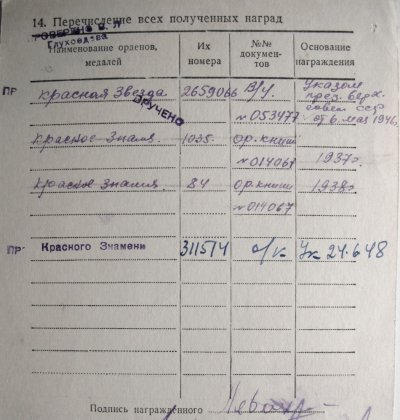 14. Перечисление всех полученных наград
Глуховцева
Наименование орденов, медалей
Их номера
№№ документов
Основание награждения
ПР
Красная Звезда
2659066
В/ч.
Указом
ВРУЧЕНО
през. верх.
совет. ссср
№053477
от 6. мая 1946г.
Красное Знамя.
1035.
ор. книж
№014067
1937г.
Красное Знамя.
84
ор. книж
1938г.
№014067
ПР
Красного Знамени
311574
о/к
Ук 24.6.48
Подпись награжденного